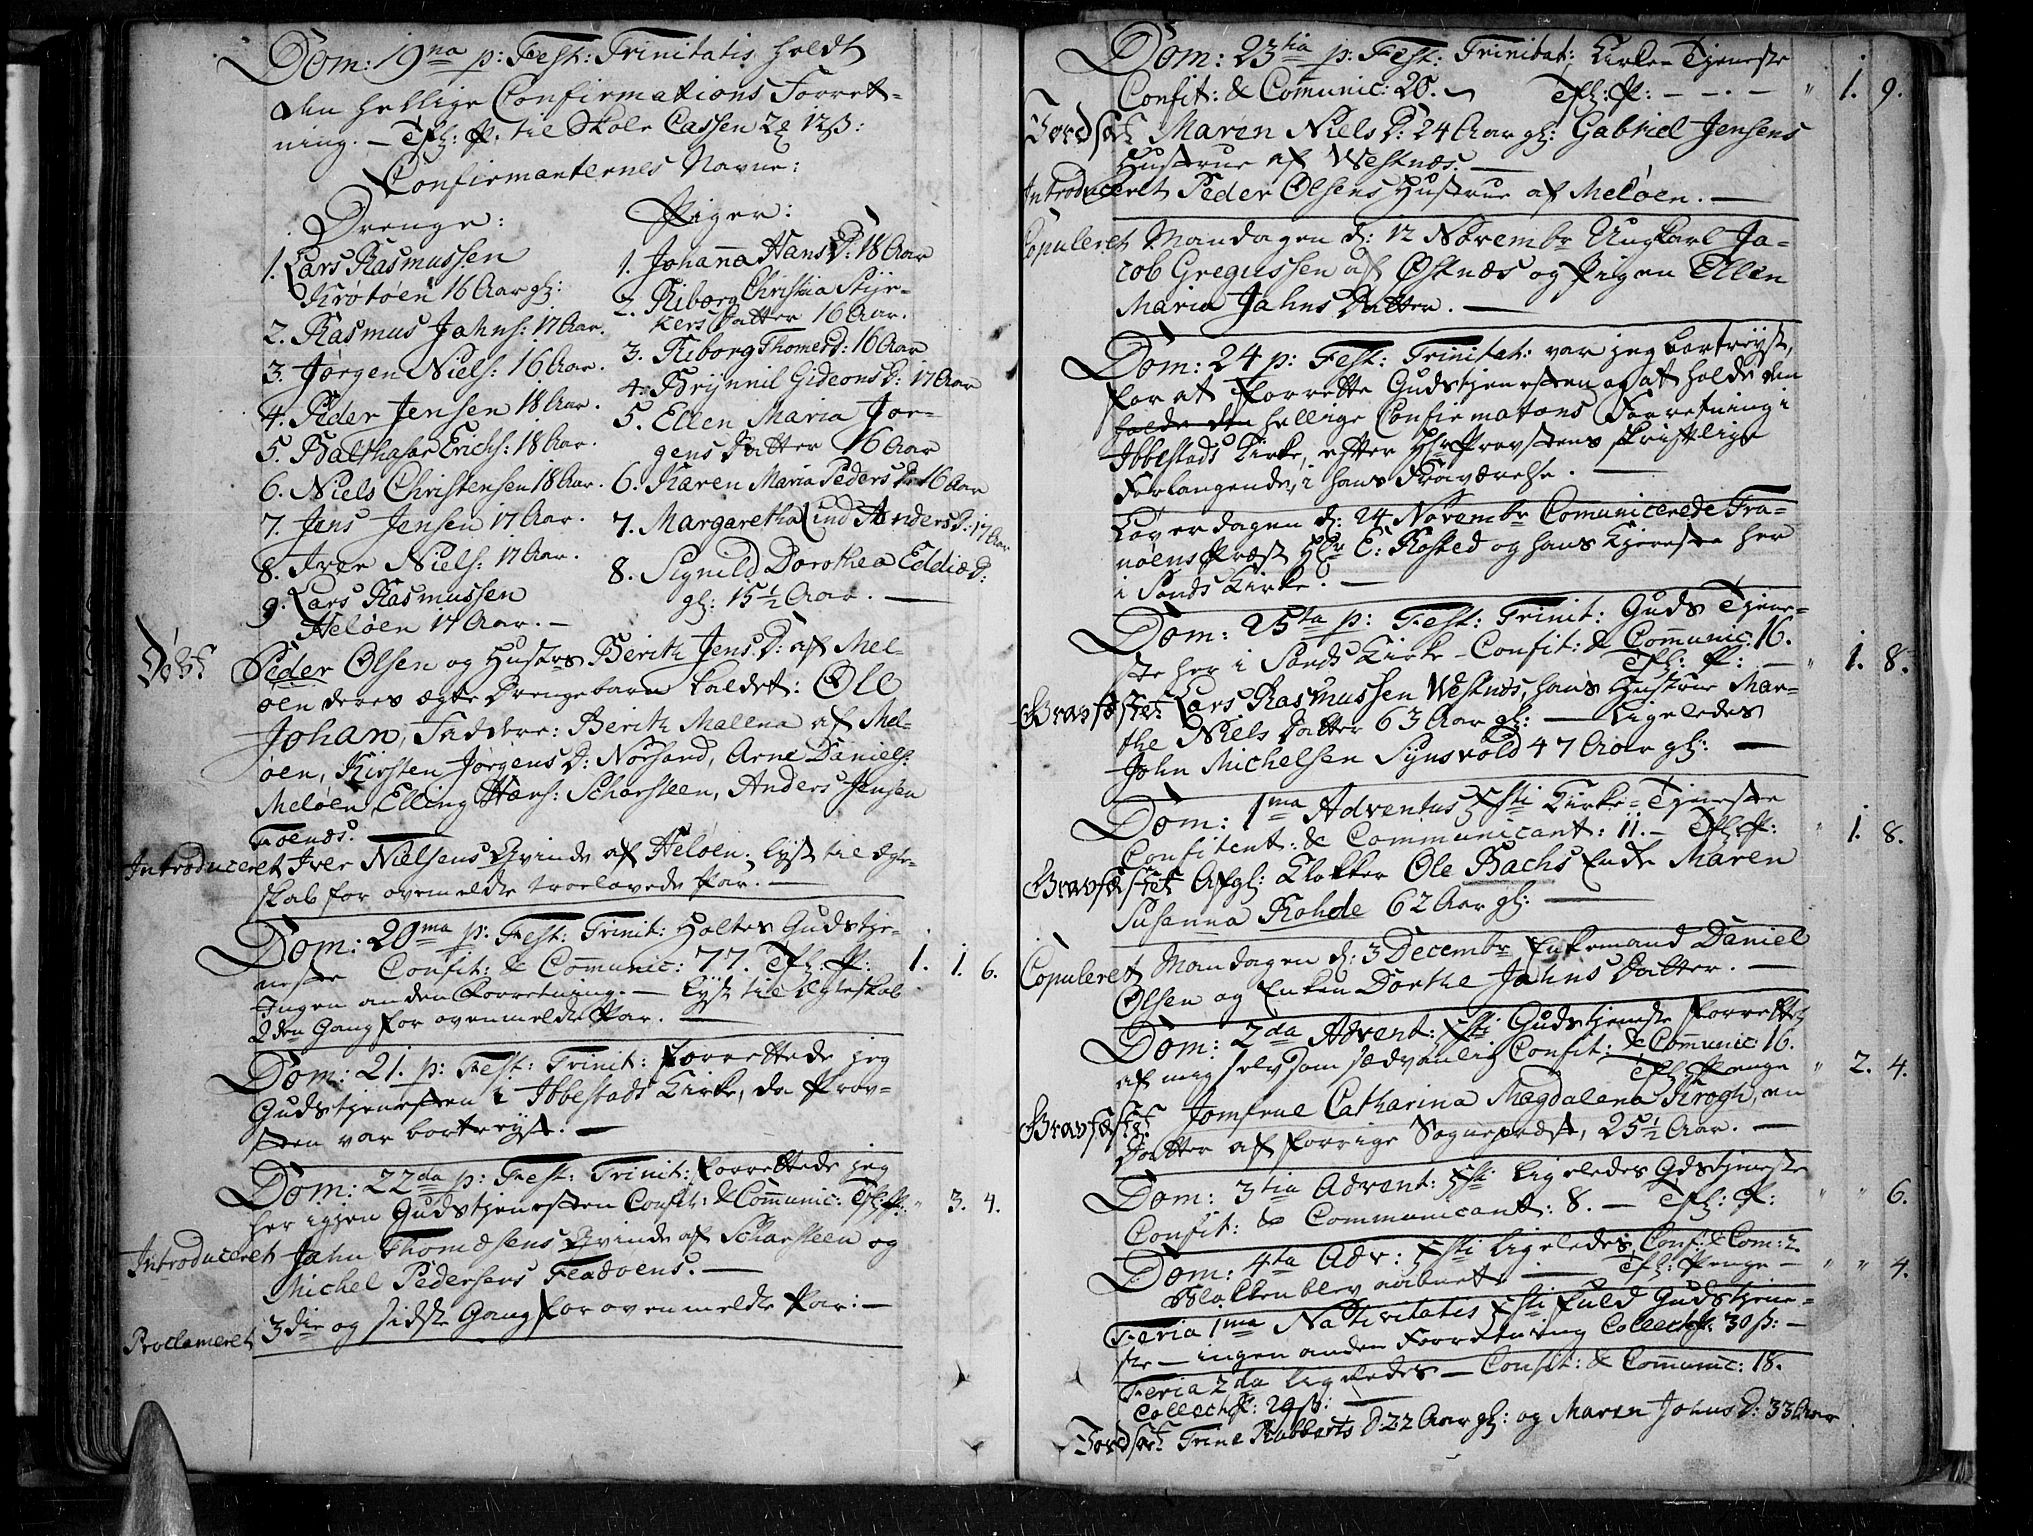 Dom: 19na p: Fest: Trinitatis holdt
den hellige Confirmations Forret-
ning. — Tfl: P. til Skole Cassen 2 12ß:
Confirmanternes Navne:
Drenge:
1. Lars Rasmussen
Krøtøen 16 Aar gl:
2. Rasmus Jahns: 17 Aar.
3. Jørgen Niels: 16 Aar.
4. Peder Jensen 18 Aar.
5. Balthasar Erichs: 18 Aar.
6. Niels Christensen 18 Aar.
7. Jens Jensen 17 Aar.
8. Iver Niels: 17 Aar.
9. Lars Rasmussen
Heløen 17 Aar. —
Piger:
1. Johanna Hans D: 18 Aar
2. Riborg Christina Styr-
kers Datter 16 Aar.
3. Riborg Thomes D: 16 Aar
4. Brynnil Gideons D: 17 Aar
5. Ellen Maria Jør-
gens Datter 16 Aar
6. Karen Maria Peders D: 16 Aar
7. Margaretha Lind Anders D: 17 Aar
8. Signild Dorothea Eddiæ D:
gl: 15½ Aar. —
Døbt Peder Olsen og Hustrs Berith Jens D: af Mel-
øen deres ægte Drengebarn kaldet: Ole
Johan, Faddere: Berith Malena af Mel-
øen, Kirsten Jørgens D: Norsand, Arne Daniels:
Meløen, Elling Hans: Scharsteen, Anders Jensen
Toenæs.
Introduceret Iver Nielsens Qvinde af Heløen. lyst til Ægte-
skab for ovenmeldte trolovede Par. —
Dom: 20ma p: Fest: Trinit: Holtes Gudstje-
neste Confit: & Communic: 77. Tfl: P: 1. 1. 6.
Ingen anden Forretning. — lyst til Egteskab
2den Gang for ovenmeldte Par. —
Dom: 21. p: Fest: Trinit: forrettede jeg
Gudstjenesten i Ibbestads Kirke, da Prov-
sten var bortreyst. —
Dom: 22da p: Fest: Trinit: forrettede jeg
her igjen Gudstjenesten Confit: & Communic: Tfl: P: " 3. 4.
Introduceret Jahn Thomæsens Qvinde af Scharsteen og
Michel Pedersens Fladøens. —
Proclameret 3die og sidste Gang for ovenmeldte Par: —
Dom: 23tia p: Fest: Trinitat: Kirke-Tjeneste
Confit: & Comunic: 20. Tfl: P: — — " 1. 9.
Jordfæst Maren Niels D: 24 Aar gl: Gabriel Jensens
Hustrue af Westnæs. —
Introduceret Peder Olsens Hustrue af Meløen. —
Copuleret Mandagen d: 12 Novembr Ungkarl Ja-
cob Gregussen af Østnæs og Pigen Ellen
Maria Jahns Datter. —
Dom: 24 p: Fest: Trinitat: var jeg bortreyst,
for at forrette Gudstjenesten og at holde den
holde den hellige Confirmations Forretning i
Ibbestads Kirke, efter Hr Provstens skriftlige
Forlangende, i hans Fraværelse. —
Løverdagen d: 24 Novembr Comunicerede Tra-
nøens Præst Hr E: Rosted og hans Kjereste her
i Sands Kirke. —
Dom: 25ta p: Fest: Trinit: Guds Tjene-
ste her i Sands Kirke — Confit: & Communic: 16.
Tfl: P: — " 1. 8.
Gravfæstet Lars Rasmussen Westnæs, hans Hustrue Mar-
the Niels Datter 63 Aar gl: — Ligeledes
John Michelsen Synsvold 47 Aar gl: —
Dom: 1ma Adventus Xsti Kirke-Tjeneste
Confitent: & Communicant: 11. — Tfl: P: " 1. 8.
Gravfæstet Afgl: Klokker Ole Bachs Enke Maren
Susanna Rohde 62 Aar gl: —
Copuleret Mandagen d: 3 Decembr Enkemand Daniel
Olsen og Enken Dorthe Jahns Datter. —
Dom: 2da Advent: Xsti Gudstjeneste forrettet
af mig selv som sædvanlig Confit: & Comunic: 16.
Tfl: Penge " 2. 4.
Gravfæstet Jomfrue Catharina Magdalena Krogh, en
Datter af forrige Sognepræst, 25½ Aar. —
Dom: 3tia Advent: Xsti ligeledes Gdstjeneste
Confit: & Communicant: 8. — Tfl: P: " " 6.
Dom: 4ta Adv: Xsti ligeledes, Conf: & Com: 2.
Blokken blev aabnet — Tfl: Penge — " " 4.
Feria 1ma Nativitatis Xsti fuld Gudstjene-
ste — ingen anden Forretning Collect: P: 30ß: —
Feria 2da ligeledes — Confit: & Communic: 18.
Collect P: 29ß: —
Jordfæst Trine Rabberts D: 22 Aar gl: og Maren Johns D: 33 Aar